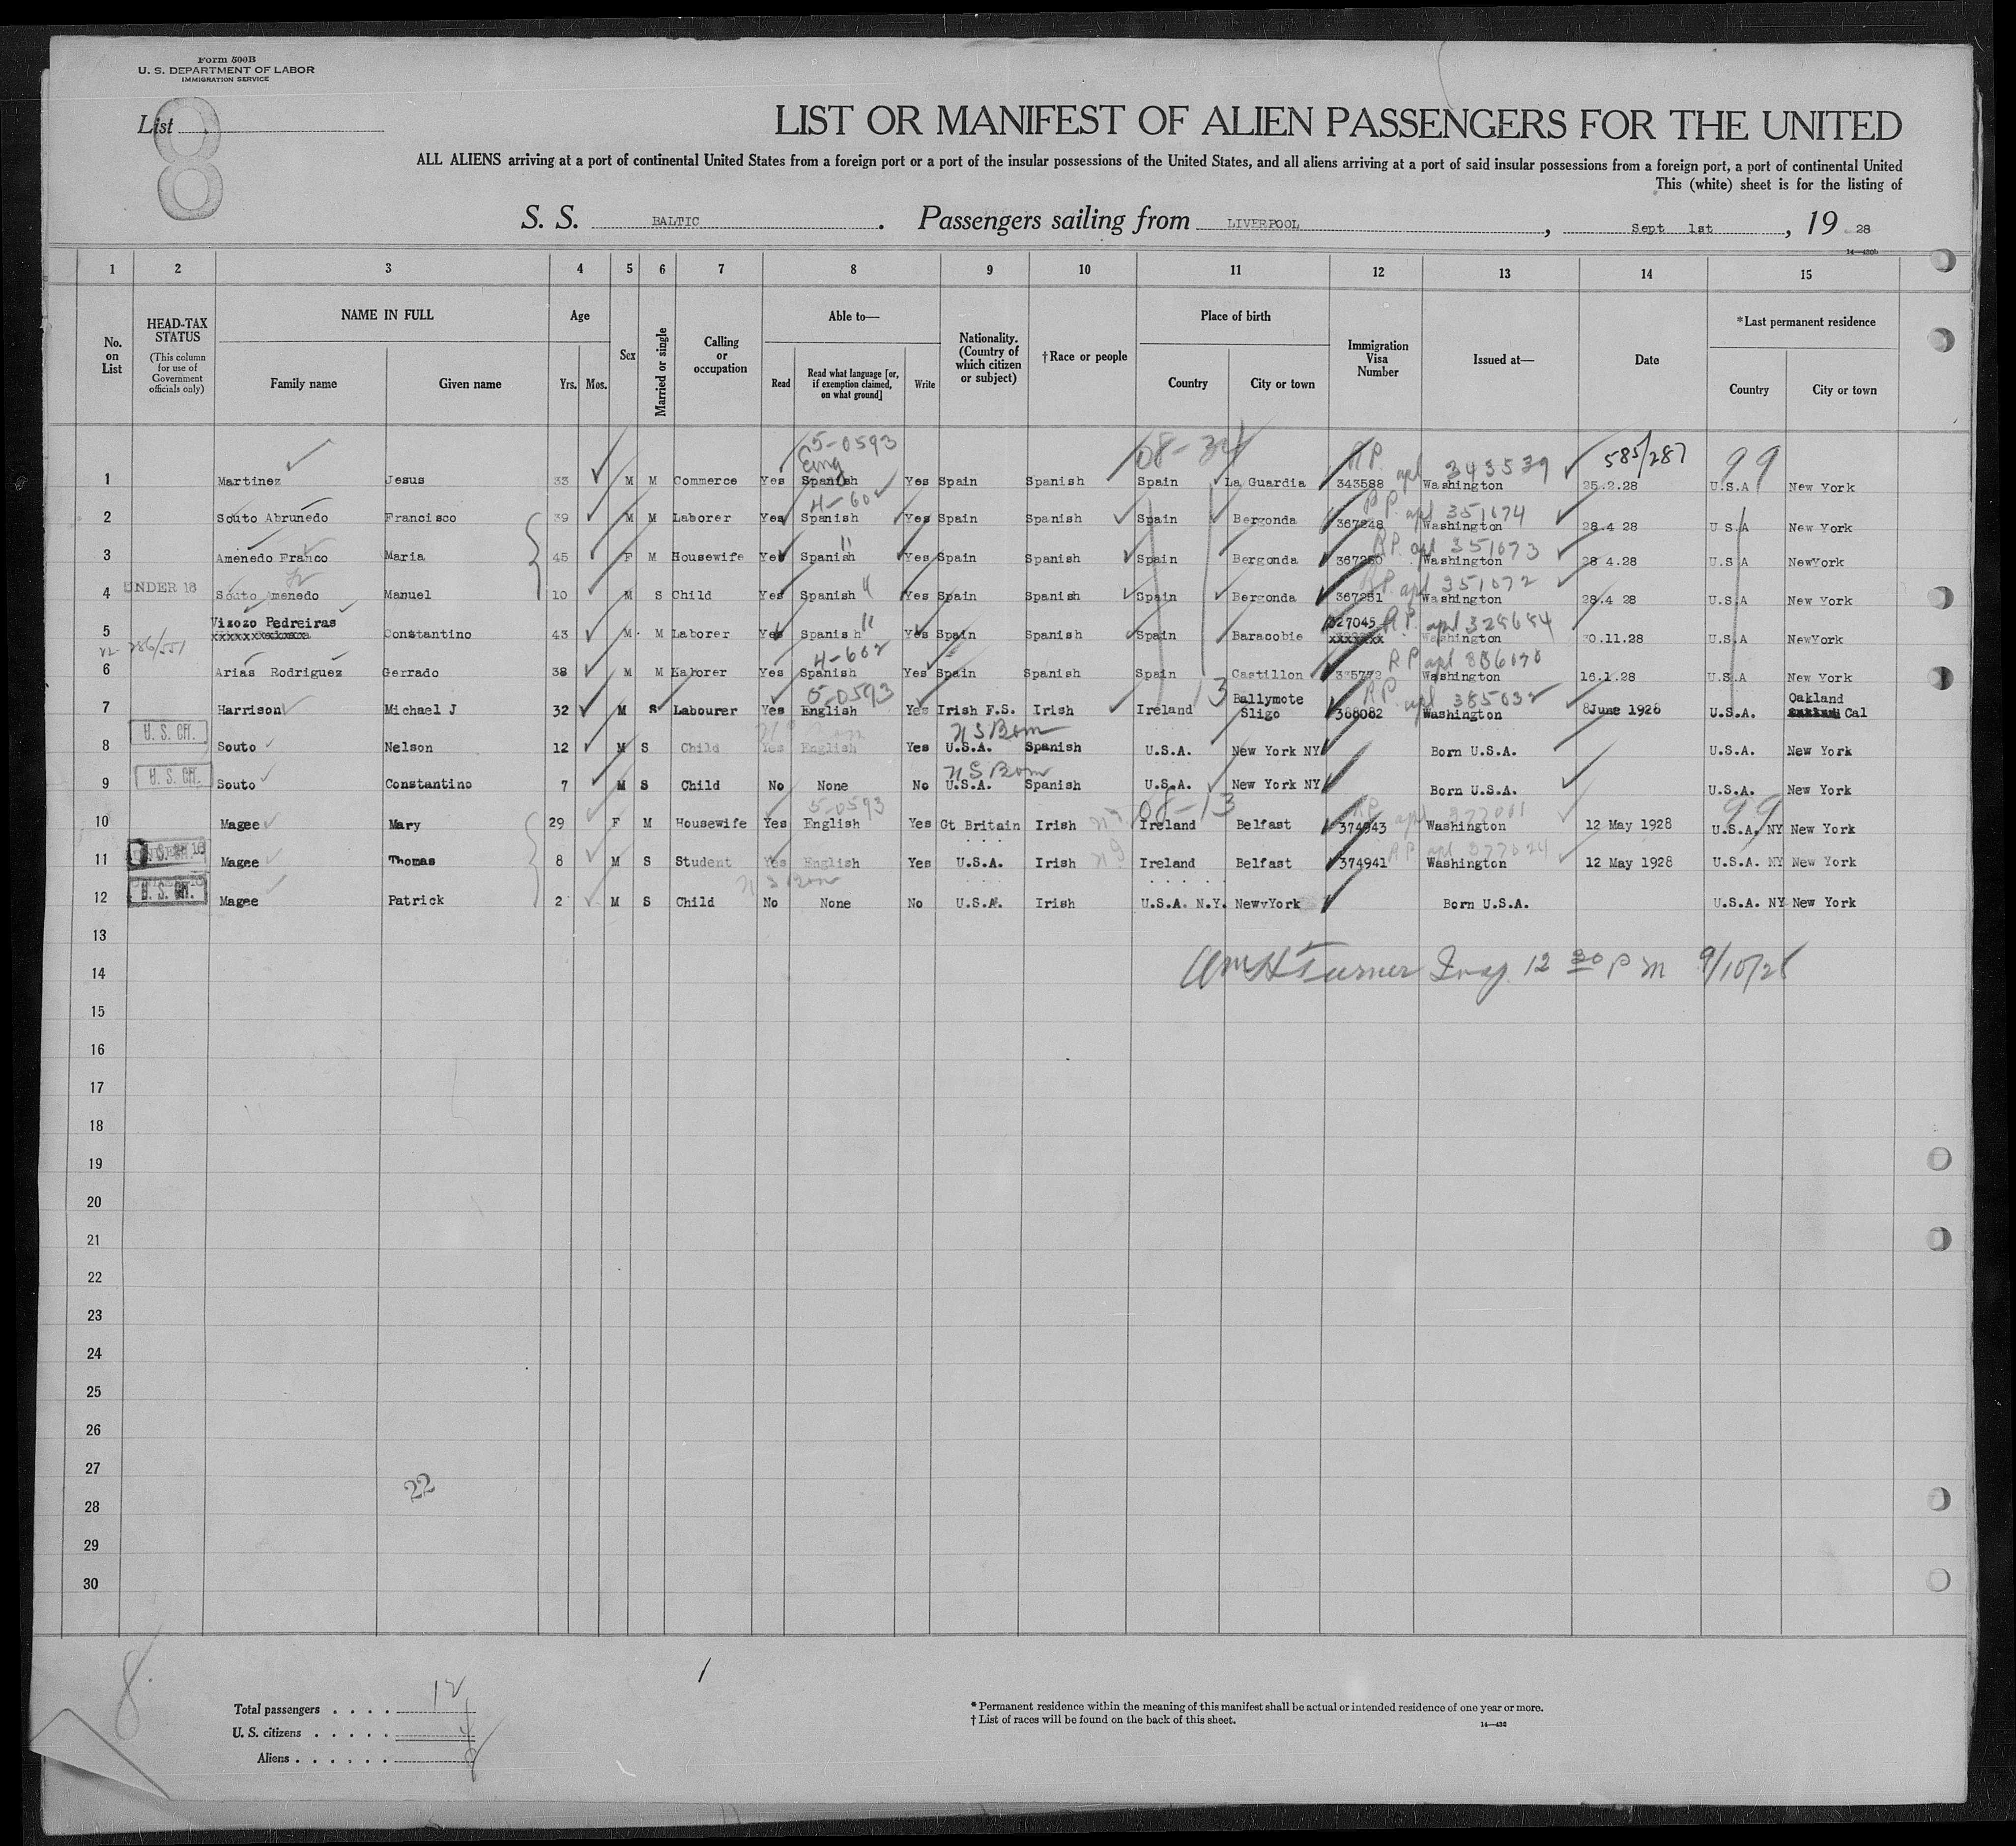 Form 500B
U. S. DEPARTMENT OF LABOR
IMMIGRATION SERVICE
List 8
LIST OR MANIFEST OF ALIEN PASSENGERS FOR THE UNITED
ALL ALIENS arriving at a port of continental United States from a foreign port or a port of the insular possessions of the United States, and all aliens arriving at a port of said insular possessions from a foreign port, a port of continental United
This (white) sheet is for the listing of
S. S. BALTIC. Passengers sailing from LIVERPOOL, Sept 1st, 19 28
14—430b
1 2 3 4 5 6 7 8 9 10 11 12 13 14 15
No. on List HEAD-TAX STATUS (This column for use of Government officials only) NAME IN FULL Age Sex Married or single Calling or occupation Able to— Nationality. (Country of which citizen or subject) †Race or people Place of birth Immigration Visa Number Issued at— Date *Last permanent residence
Family name Given name Yrs. Mos. Read Read what language [or, if exemption claimed, on what ground] Write Country City or town Country City or town
5-0593 08-34 RP. apl 343539 585/287 99
Eng
1 Martinez Jesus 33 M M Commerce Yes Spanish Yes Spain Spanish Spain La Guardia 343588 Washington 25.2.28 U.S.A New York
4-602 RP. apl 351074
2 Souto Abrunedo Francisco 39 M M Laborer Yes Spanish Yes Spain Spanish Spain Bergonda 367248 Washington 28.4 28 U S A New York
" RP. apl 351073
3 Amenedo Franco Maria 45 F M Housewife Yes Spanish Yes Spain Spanish Spain Bergonda 367250 Washington 28 4.28 U.S A NewYork
RP. apl 351072
4 UNDER 16 Souto Amenedo Manuel 10 M S Child Yes Spanish " Yes Spain Spanish Spain Bergonda 367251 Washington 28.4 28 U.S.A New York
Vizozo Pedreiras 327045 RP. apl 328684
5 xxxxxxxxxxxxx Constantino 43 M M Laborer Yes Spanish " Yes Spain Spanish Spain Baracobie xxxxxxx Washington 30.11.28 U.S.A NewYork
286/551 4-602 RP apl 336070
6 Arias Rodriguez Gerrado 38 M M Laborer Yes Spanish Yes Spain Spanish Spain Castillon 335772 Washington 16.1.28 U.S.A New York
5-0593 13 Ballymote RP. apl 385032 Oakland
7 Harrison Michael J 32 M S Labourer Yes English Yes Irish F.S. Irish Ireland Sligo 388082 Washington 8June 1928 U.S.A. Cal
U. S. CIT. U S Born
8 Souto Nelson 12 M S Child Yes English Yes U.S.A. Spanish U.S.A. New York NY Born U.S.A. U.S.A. New York
U. S. CIT. U S Born
9 Souto Constantino 7 M S Child No None No U.S.A. Spanish U.S.A. New York NY Born U.S.A. U.S.A. New York
5-0593 08-13 RP. apl 377001 99
10 Magee Mary 29 F M Housewife Yes English Yes Gt Britain Irish Ireland Belfast 374943 Washington 12 May 1928 U.S.A. NY New York
RP apl 377024
11 Magee Thomas 8 M S Student Yes English Yes U.S.A. Irish Ireland Belfast 374941 Washington 12 May 1928 U.S.A. NY New York
U S Born
12 U. S. CIT. Magee Patrick 2 M S Child No None No U.S.A. Irish U.S.A. N.Y. NewvYork Born U.S.A. U.S.A. NY New York
13
Wm H Turner Insp. 12 30 P M 9/10/28
14
15
16
17
18
19
20
21
22
23
24
25
26
27
22
28
29
30
8.
Total passengers . . . . 12
U. S. citizens . . . . . 4
Aliens . . . . . . 8
* Permanent residence within the meaning of this manifest shall be actual or intended residence of one year or more.
† List of races will be found on the back of this sheet.
14—430